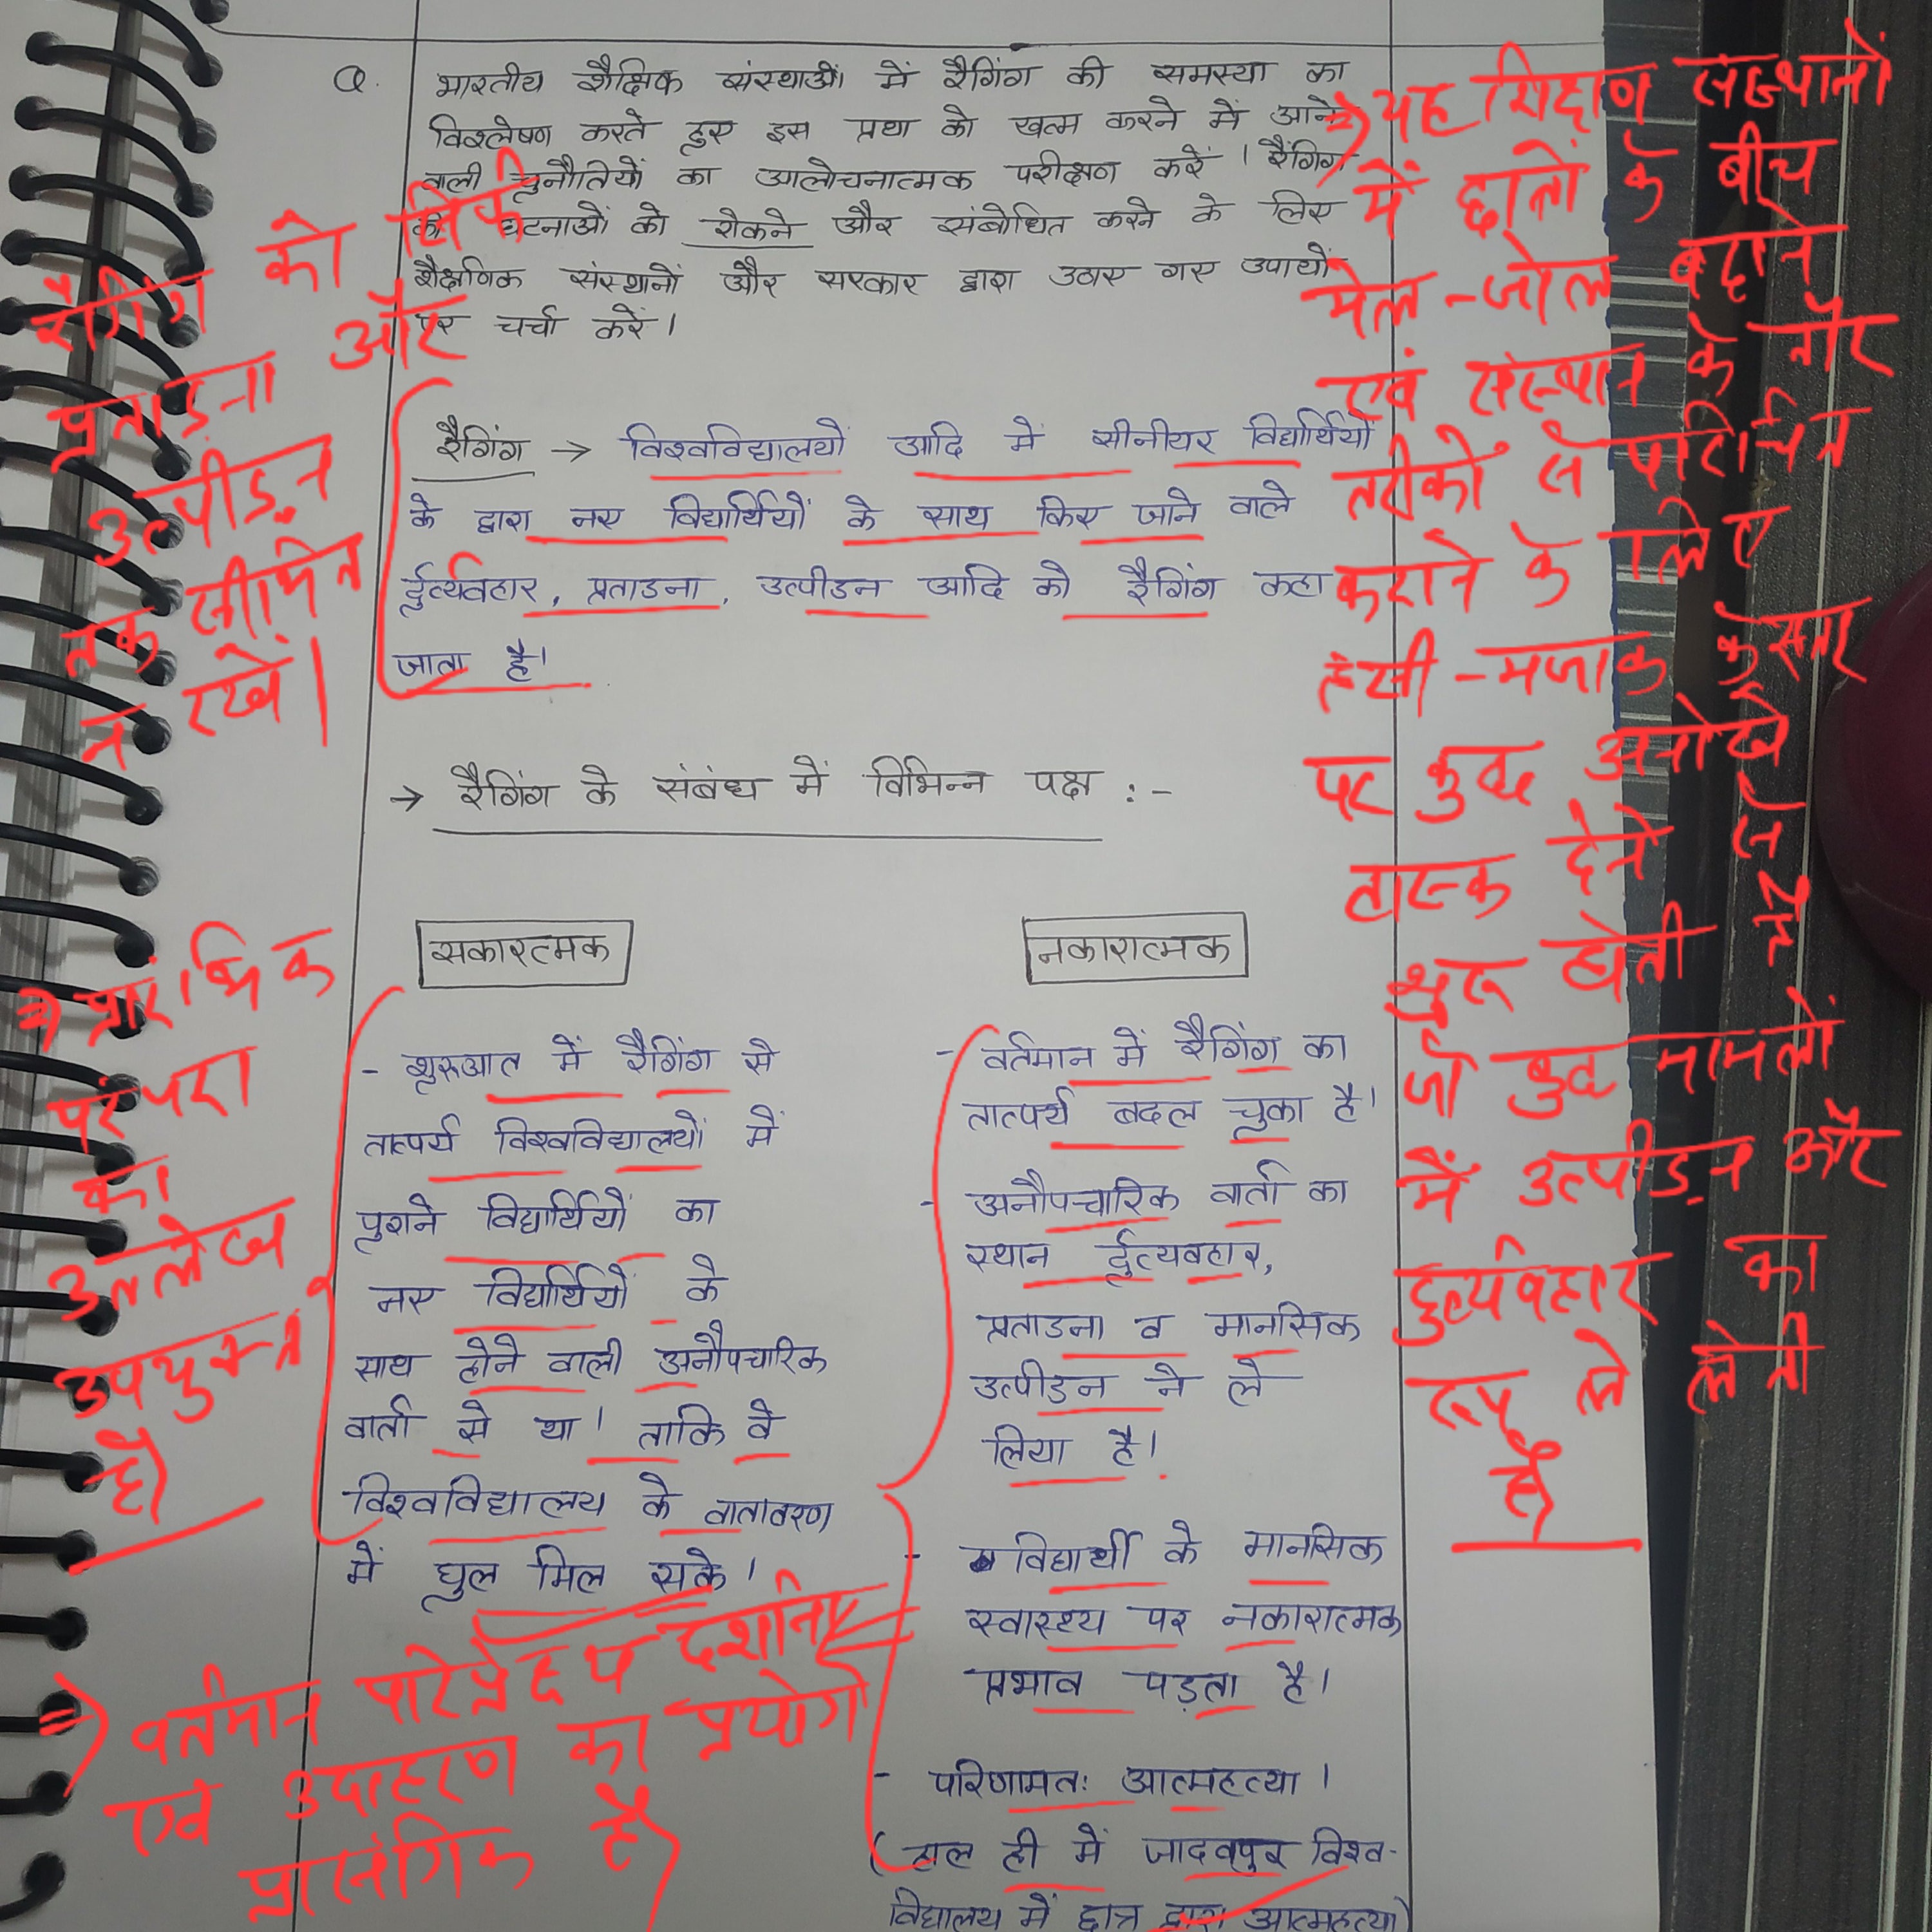 Q. भारतीय शैक्षिक संस्थाओं में रैगिंग की समस्या का
विश्लेषण करते हुए इस प्रथा को खत्म करने में आने
वाली चुनौतियों का आलोचनात्मक परीक्षण करें । रैगिंग
की घटनाओं को रोकने और संबोधित करने के लिए
शैक्षणिक संस्थानों और सरकार द्वारा उठाए गए उपायों
पर चर्चा करें ।
रैगिंग → विश्वविद्यालयों आदि में सीनीयर विद्यार्थियों
के द्वारा नए विद्यार्थियों के साथ किए जाने वाले
र्दुव्यवहार, प्रताडना, उत्पीडन आदि को रैगिंग कहा
जाता है।
→ रैगिंग के संबंध में विभिन्न पक्ष :-
सकारत्मक
- शुरुआत में रैगिंग से
तात्पर्य विश्वविद्यालयों में
पुराने विद्यार्थियों का
नए विद्यार्थियों के
साथ होने वाली अनौपचारिक
वार्ता से था। ताकि वे
विश्वविद्यालय के वातावरण
में घुल मिल सके।
नकारात्मक
- वर्तमान में रैगिंग का
तात्पर्य बदल चुका है।
- अनौपचारिक वार्ता का
स्थान र्दुव्यवहार,
प्रताडना व मानसिक
उत्पीडन ने ले
लिया है।
- विद्यार्थी के मानसिक
स्वास्थ्य पर नकारात्मक
प्रभाव पड़ता है।
- परिणामतः आत्महत्या ।
(हाल ही में जादवपुर विश्व-
विद्यालय में छात्र द्वारा आत्महत्या)
रैगिंग को सिर्फ
प्रताड़ना और
उत्पीड़न
तक सीमित
न रखें।
⇒ प्रारंभिक
परंपरा
का
उल्लेख
उपयुक्त
है
⇒ वर्तमान परिप्रेक्ष्य दर्शाना
एवं उदाहरण का प्रयोग
प्रासंगिक है
⇒ यह शिक्षण संस्थानों
में छात्रों के बीच
मेल-जोल बढ़ाने
एवं संस्थान के तौर
तरीकों से परिचित
कराने के लिए
हंसी-मजाक के स्तर
पर कुछ अनोखे
टास्क देने से
शुरू होती है
जो कुछ मामलों
में उत्पीड़न और
दुर्व्यवहार का
रूप ले लेती
है